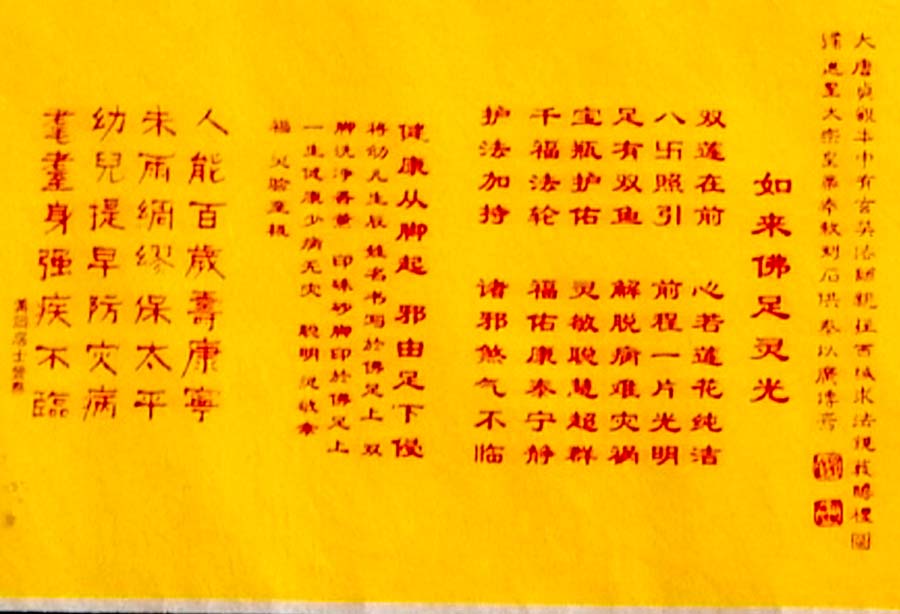 大唐贞觀年中有玄奘法師親往西域求法親我瞻禮圖
進呈太宗皇帝奉敕刻石供奉以廣傳焉
如来佛足灵光
双莲在前 心若莲花纯洁
八卐照引 前程一片光明
足有双鱼 解脱病难灾祸
宝瓶护佑 灵敏聪慧超群
千福法轮 福佑康泰宁静
护法加持 诸邪煞气不临
健康从脚起 邪由足下侵
将幼儿生辰 姓名书写於佛足上 双
脚洗净香薰 印硃砂脚印於佛足上
一生健康少病无灾 聪明灵敏幸
福 灵验至极
人能百歲壽康寧
未雨綢缪保太平
幼兒提早防灾病
耄耋身强疾不臨
居士